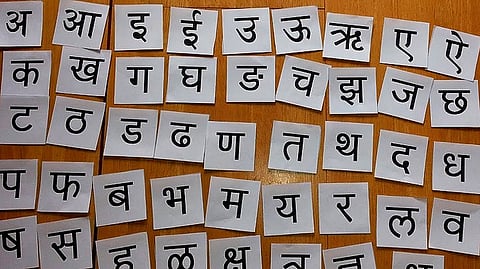 अ आ इ ई उ ऊ ऋ ए ऐ
क ख ग घ ङ च झ ज छ
ट ठ ड ढ ण त थ द ध
प फ ब भ म य र ल व
ष स ह ळ क्ष त्र ज्ञ